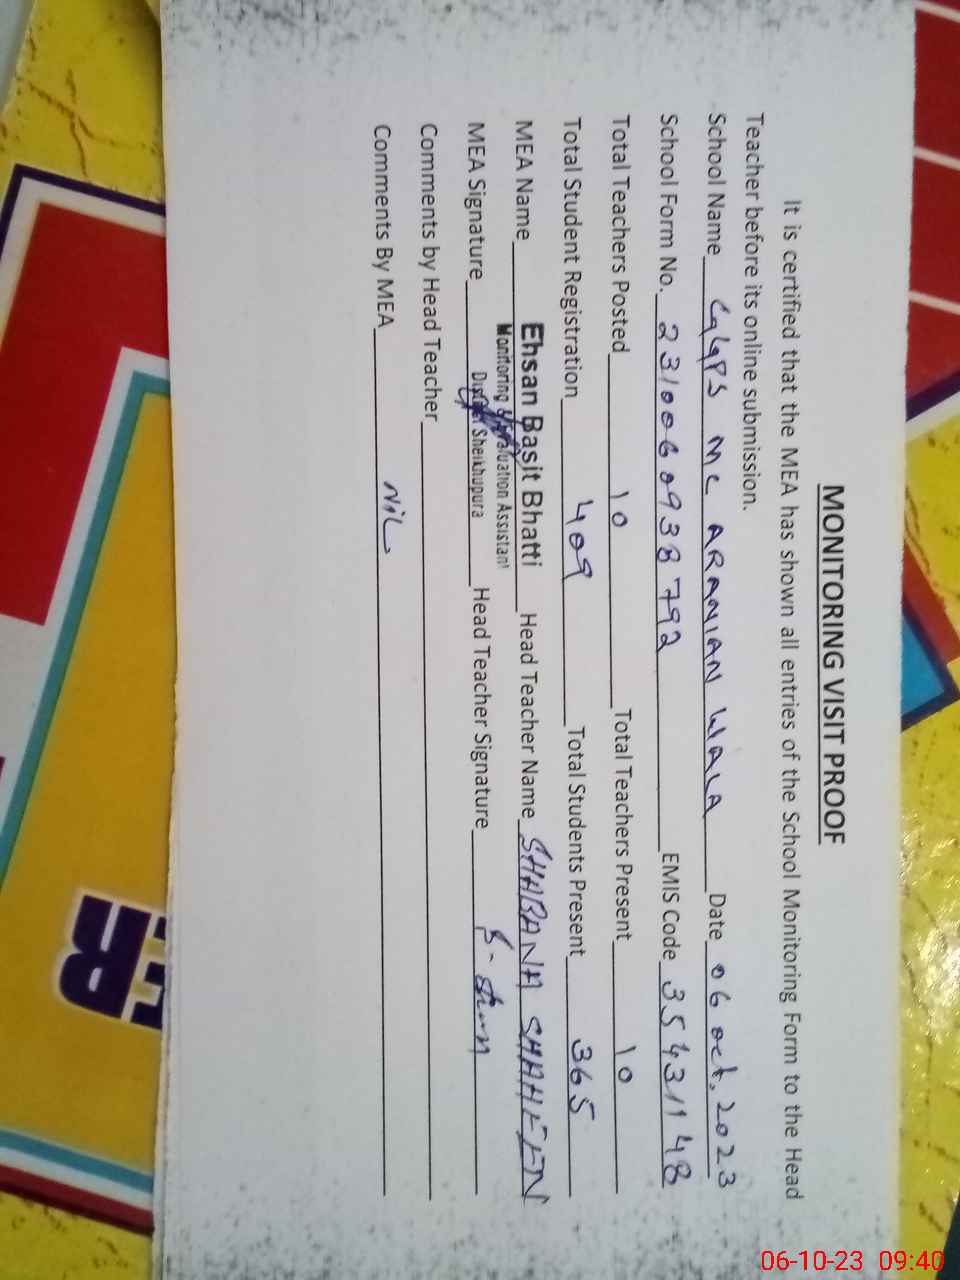 MONITORING VISIT PROOF
It is certified that the MEA has shown all entries of the School Monitoring Form to the Head
Teacher before its online submission.
School Name GGPS MC ARANIAN WALA Date 06 oct, 2023
School Form No. 231006 0938792 EMIS Code 35431148
Total Teachers Posted 10 Total Teachers Present 10
Total Student Registration 409 Total Students Present 365
MEA Name Ehsan Basit Bhatti Head Teacher Name SHABANA SHAHEEN
Monitoring & Evaluation Assistant
MEA Signature District Sheikhupura Head Teacher Signature
Comments by Head Teacher
Comments By MEA NIL
ER
06-10-23 09:40